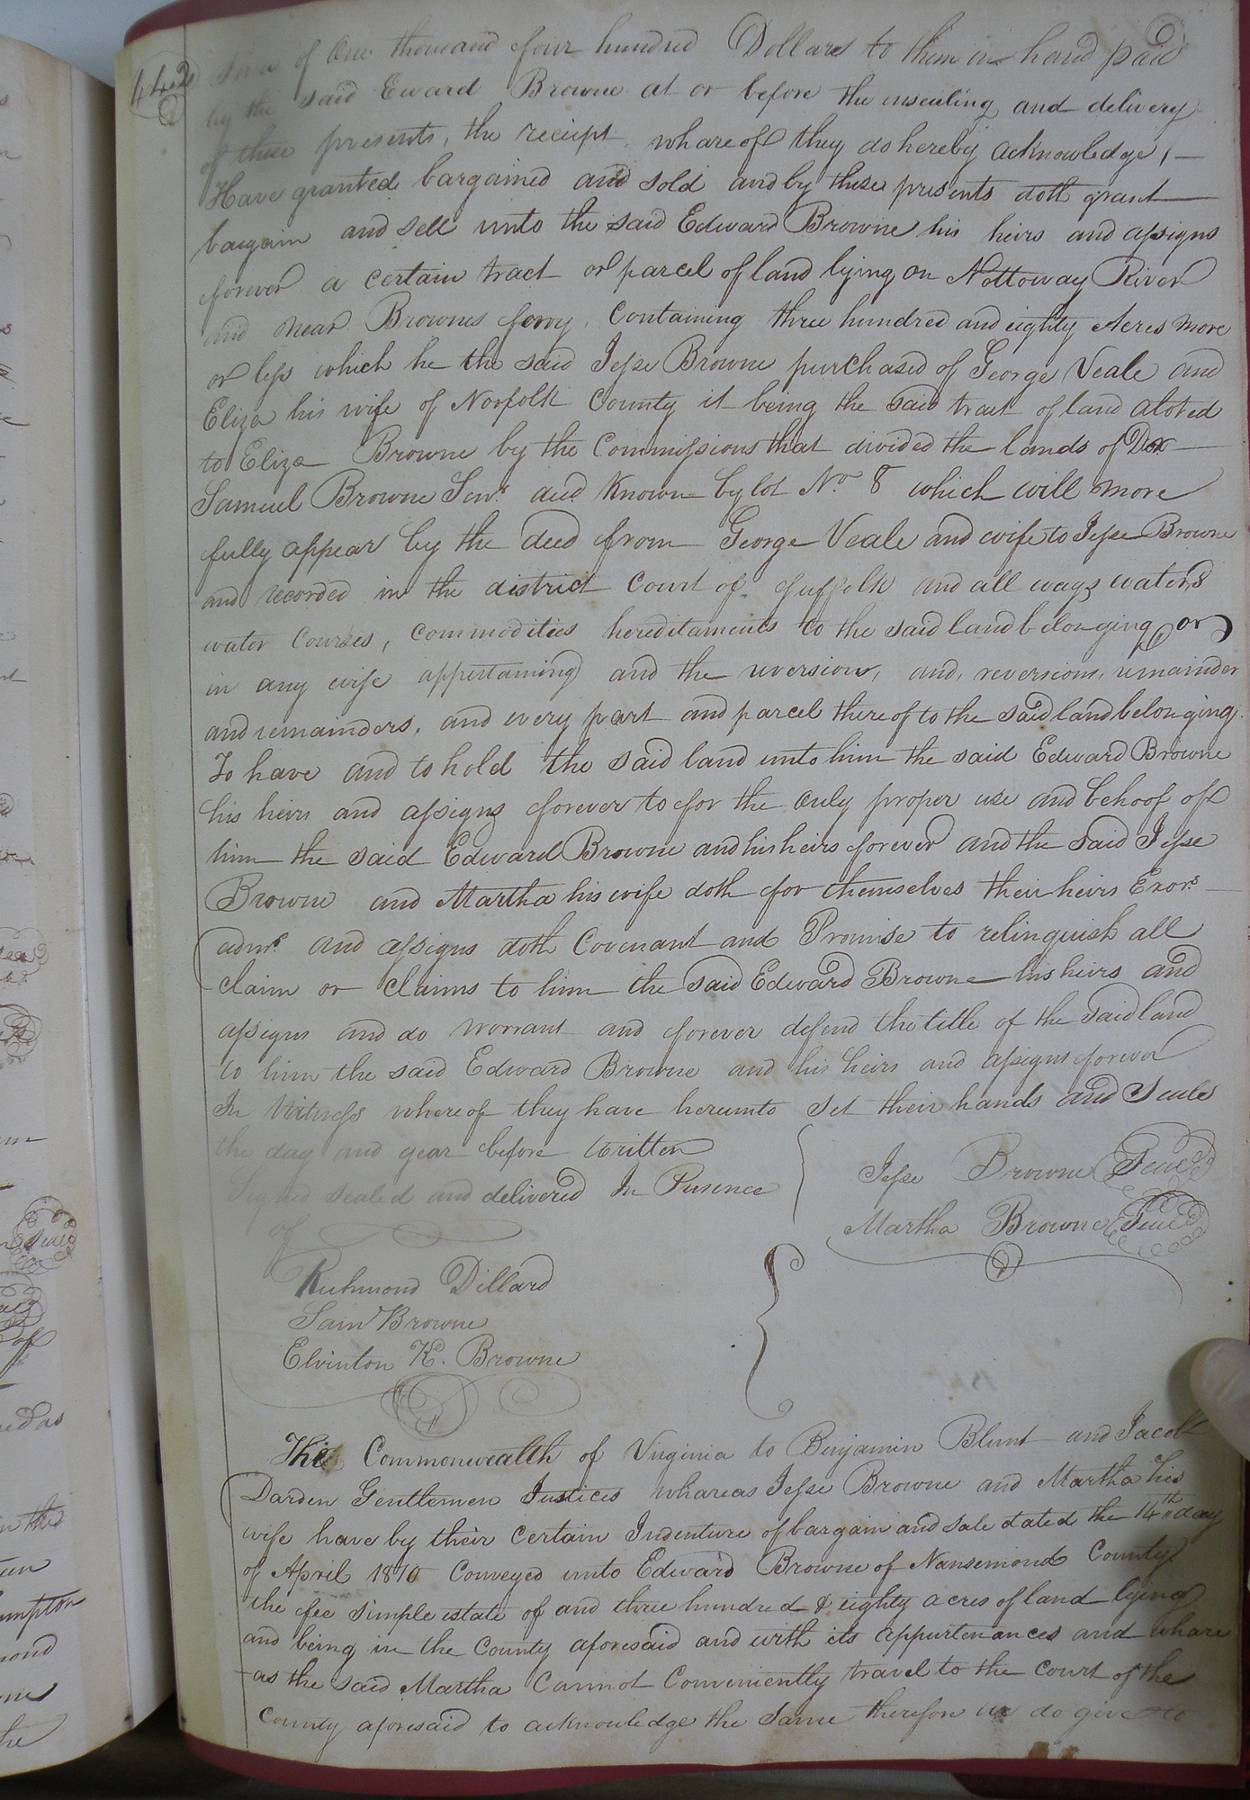 442
sum of One thousand four hundred Dollars to them in hand paid
by the said Eward Browne at or before the ensealing and delivery
of these presents, the receipt whareof they do hereby acknowledge,
Have granted bargained and sold and by these presents doth grant
bargain and sell unto the said Edward Browne his heirs and assigns
forever a certain tract or parcel of land lying on Nottoway River
and near Brownes ferry. Containing three hundred and eighty Acres more
or less which he the said Jesse Browne purchased of George Veale and
Eliza his wife of Norfolk County it being the said tract of land aloted
to Eliza Browne by the Commissions that divided the lands of Dor
Samuel Browne Senr. and Known by lot No. 8 which will more
fully appear by the deed from George Veale and wife to Jesse Browne
and recorded in the district Court of Suffolk and all ways waters
water Courses, commodities hereditaments to the said land belonging or
in any wise appertaining and the reversion, and, reversions, remainder
and remainders, and every part and parcel thereof to the said land belonging
To have and to hold the said land unto him the said Edward Browne
his heirs and assigns forever to for the only proper use and behoof of
him the said Edward Browne and his heirs forever and the said Jesse
Browne and Martha his wife doth for themselves their heirs Exors.
admr. and assigns doth Covenant and Promise to relinquish all
claim or Claims to him the said Edward Browne his heirs and
assigns and do worrant and forever defend the title of the said land
to him the said Edward Browne and his heirs and assigns forever
In Witness whereof they have hereunto Set their hands and Seals
the day and year before written
Signed sealed and delivered In Presence
of
Jesse Browne Seal
Martha Browne Seal
Richmond Dillard
Saml Browne
Elvinton K. Browne
The Commonwealth of Virginia to Benjamin Blunt and Jacob
Darden Gentlemen Justices whareas Jesse Browne and Martha his
wife have by their Certain Indenture of bargain and sale dated the 14th day
of April 1810 Conveyed unto Edward Browne of Nansemond County
the fee simple estate of and three hundred & eighty acres of land lying
and being in the County aforesaid and with its appurtenances and whare
as the said Martha Cannot Conveniently travel to the Court of the
County aforesaid to acknowledge the Same therefore we do give